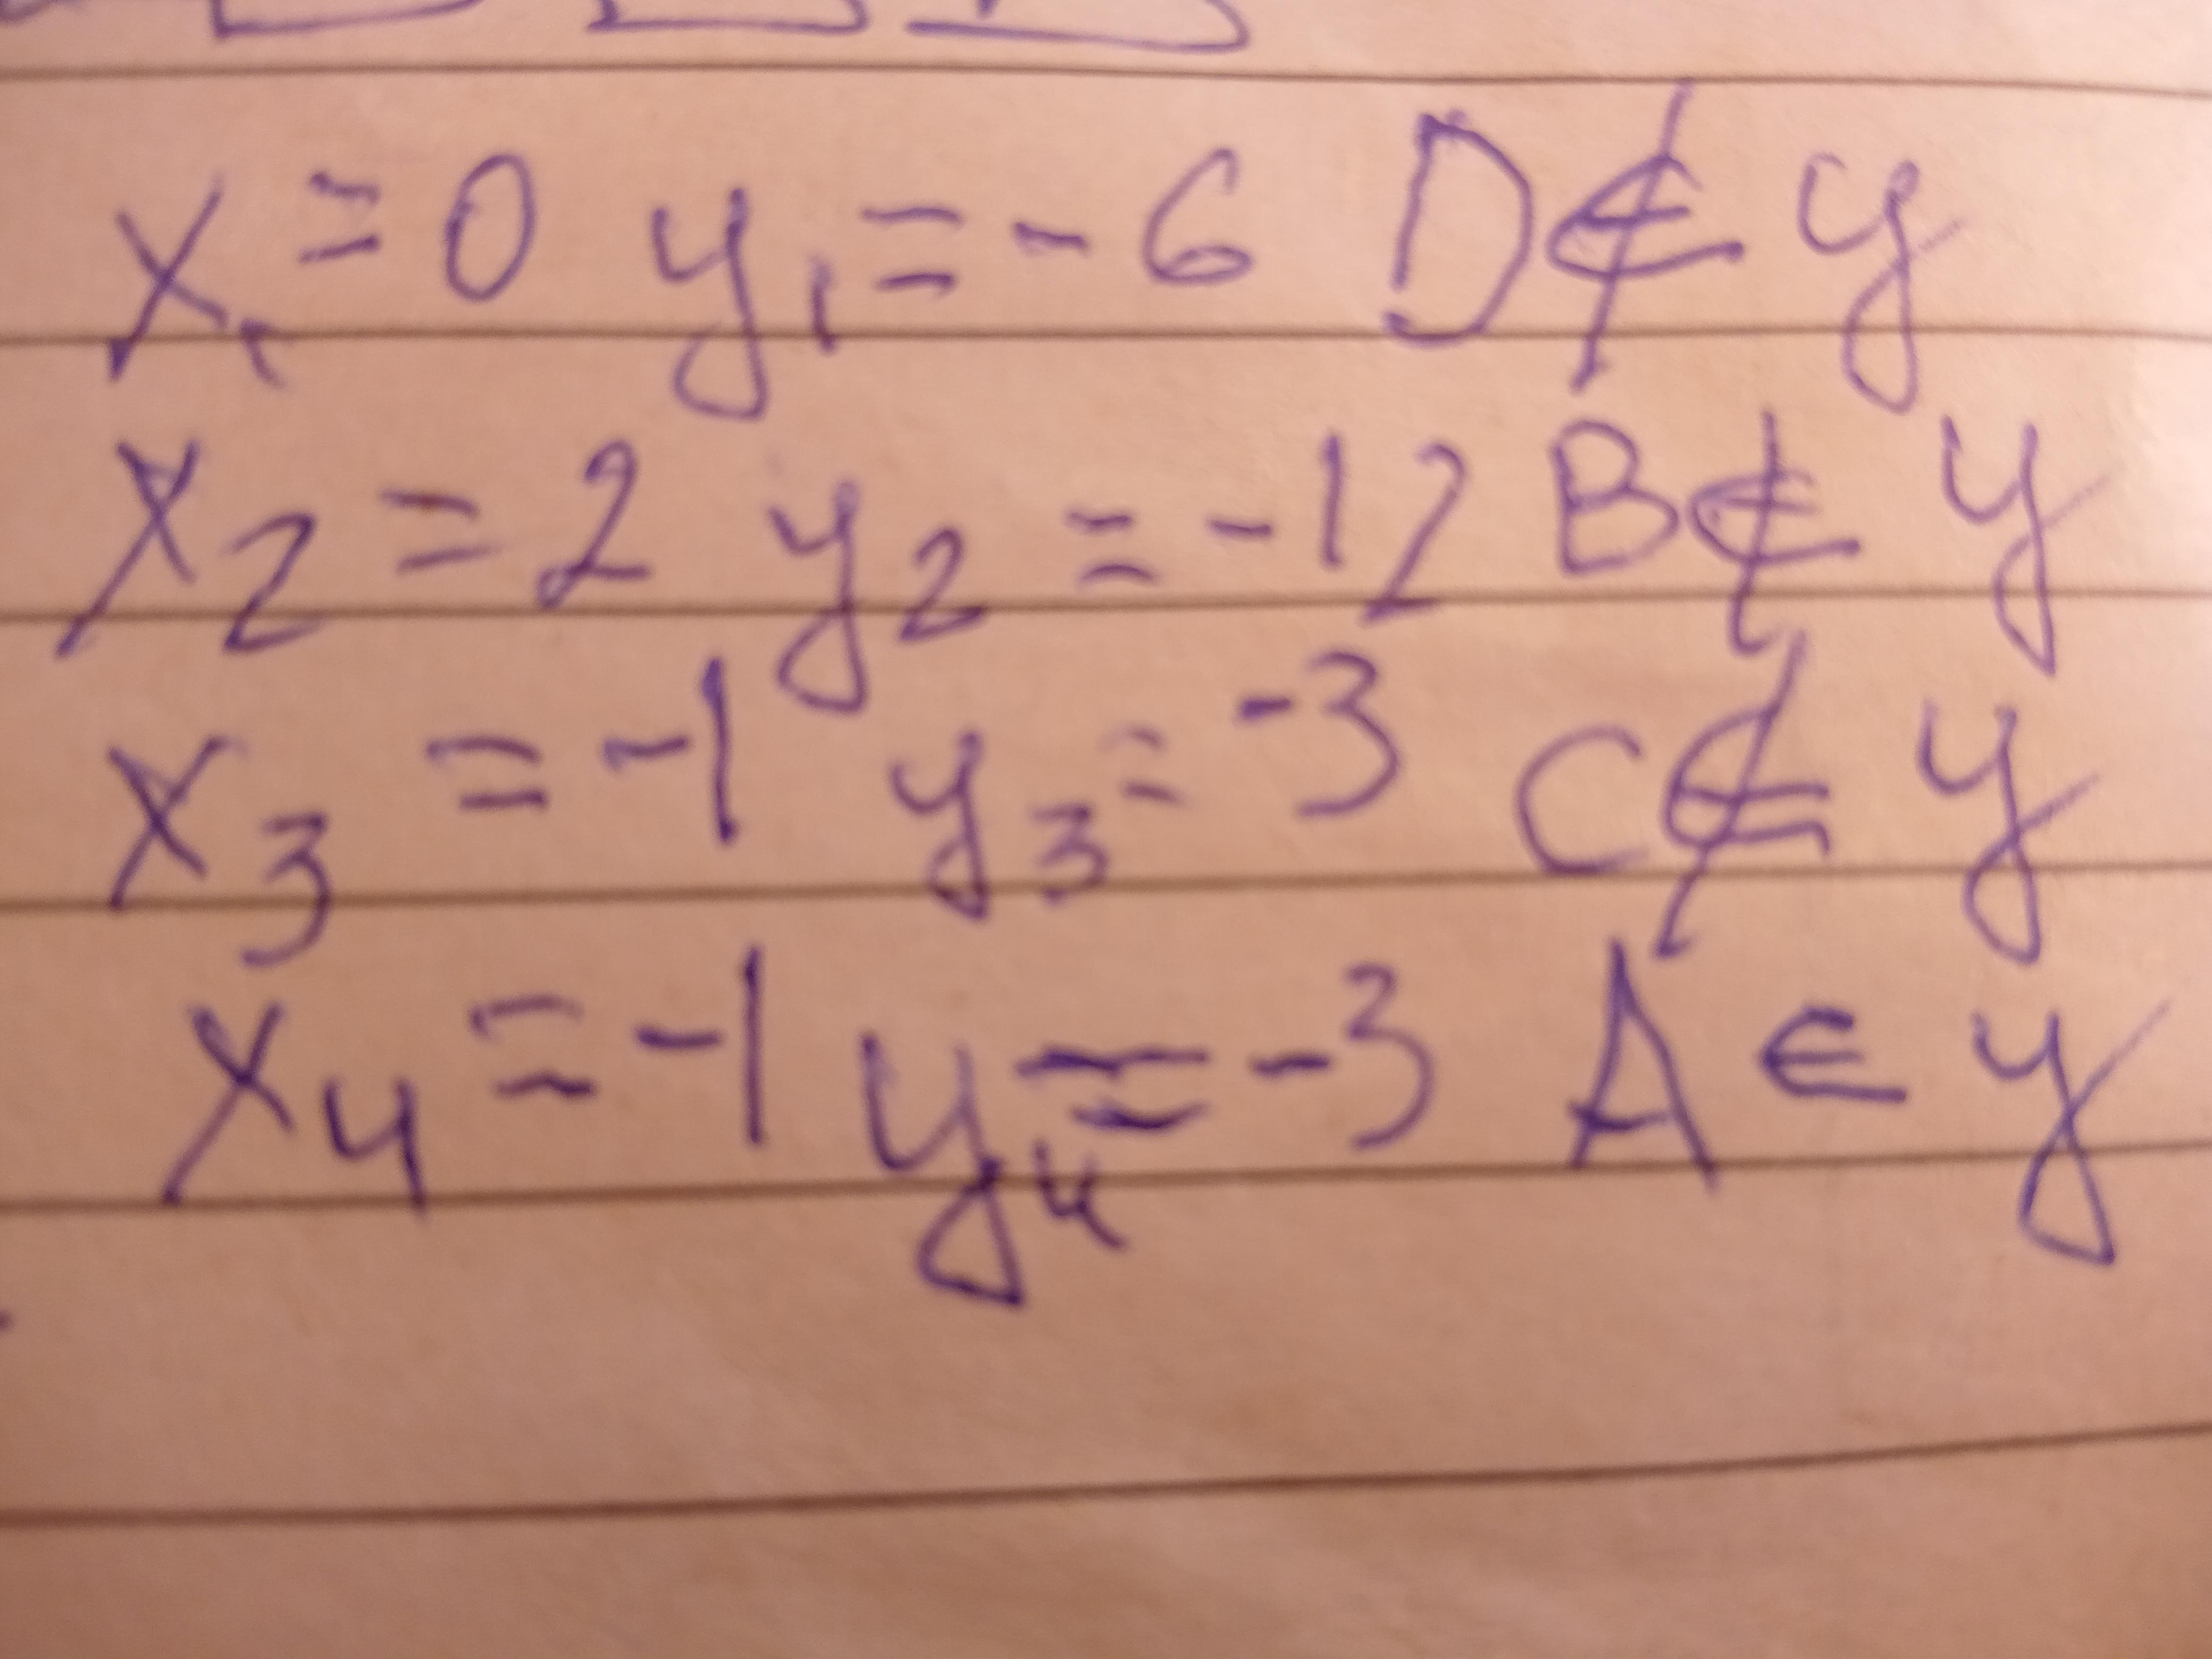 x₁ = 0 y₁ = -6 D ∉ y
x₂ = 2 y₂ = -12 B ∉ y
x₃ = -1 y₃ = -3 C ∉ y
x₄ = -1 y₄ = -3 A ∈ y